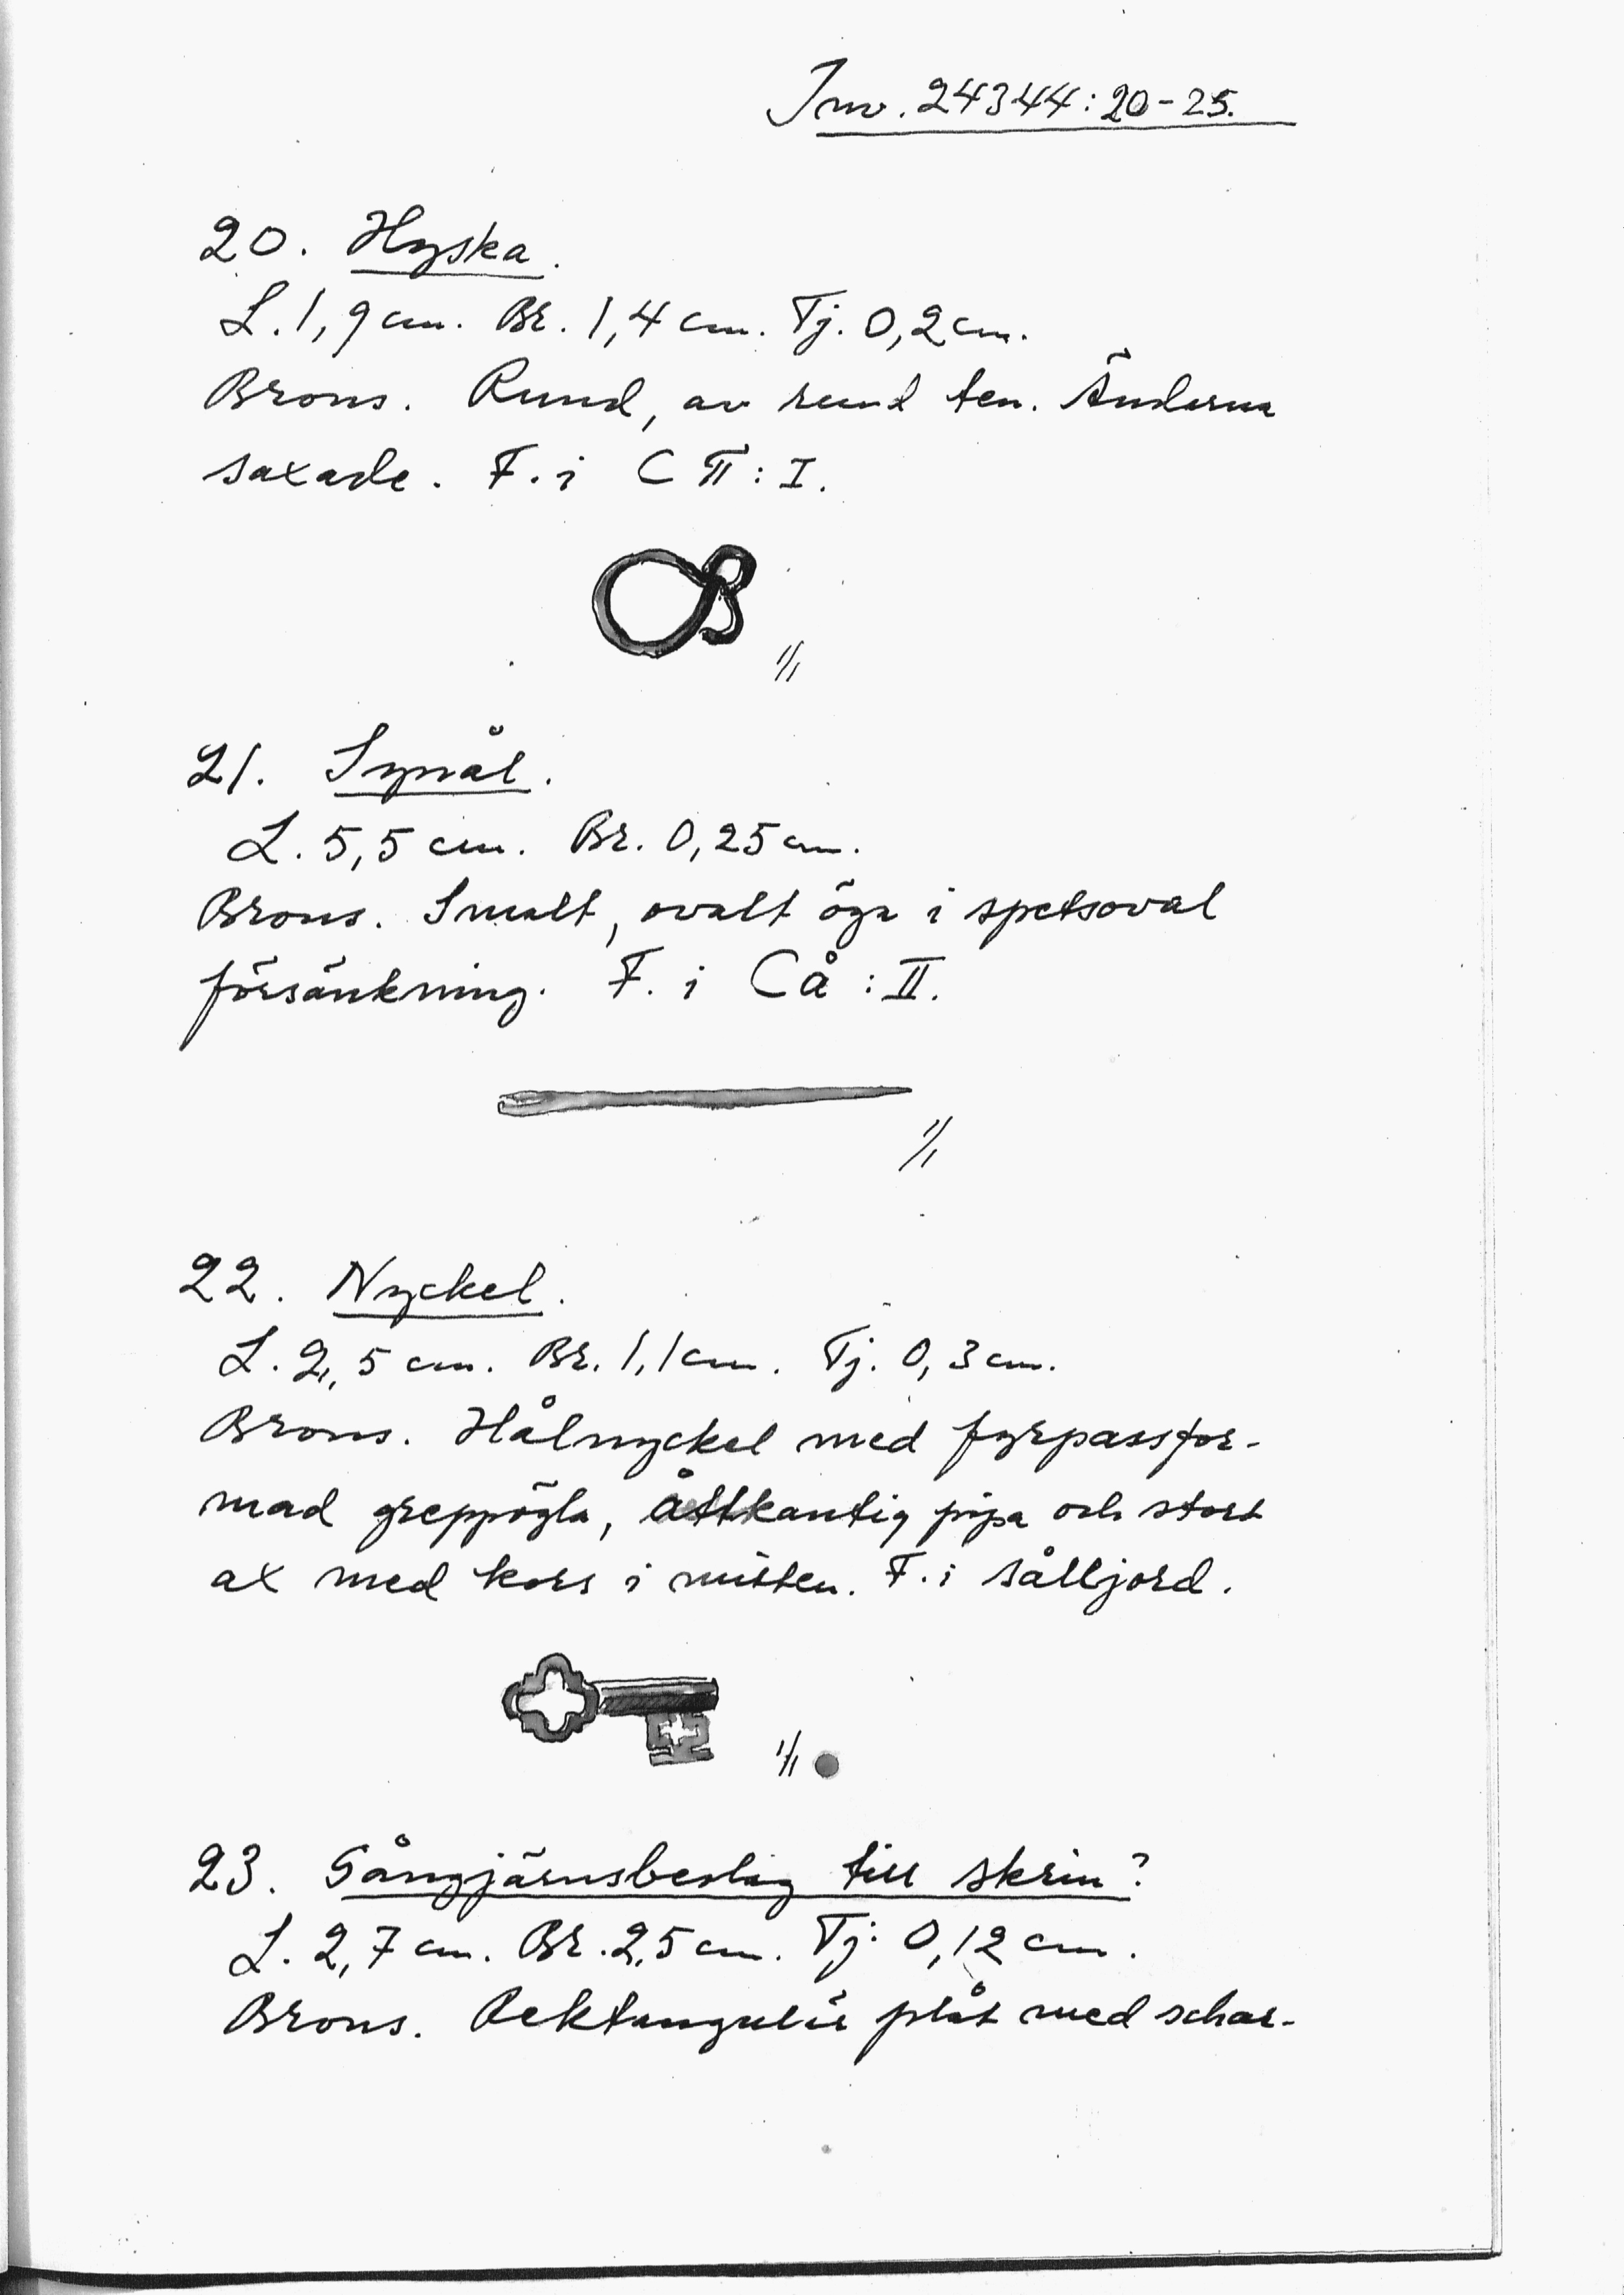 Inv. 24344:20-25.
20. Hyska.
L. 1,9 cm. Br. 1,4 cm. Tj. 0,2 cm.
Brons. Rund, av rund ten. Ändarna
saxade. F. i C II : I.
1/1
21. Synål.
L. 5,5 cm. Br. 0,25 cm.
Brons. Smalt, ovalt öga i spetsoval
försänkning. F. i Cå : II.
1/1
22. Nyckel.
L. 2,5 cm. Br. 1,1 cm. Tj. 0,3 cm.
Brons. Hålnyckel med fyrpassfor-
mad greppögla, åttkantig pipa och stort
ax med kors i mitten. F. i sålljord.
1/1
23. Gångjärnsbeslag till skrin?
L. 2,7 cm. Br. 2,5 cm. Tj: 0,12 cm.
Brons. Rektangulär plåt med schar-